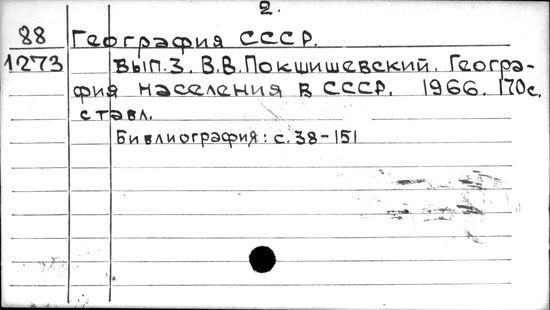 2.
88 География СССР.
1273 Вып.3. В.В.Покшишевский. Геогра-
фия населения в СССР. 1966. 170с.
с табл.
Библиография: с. 38-151